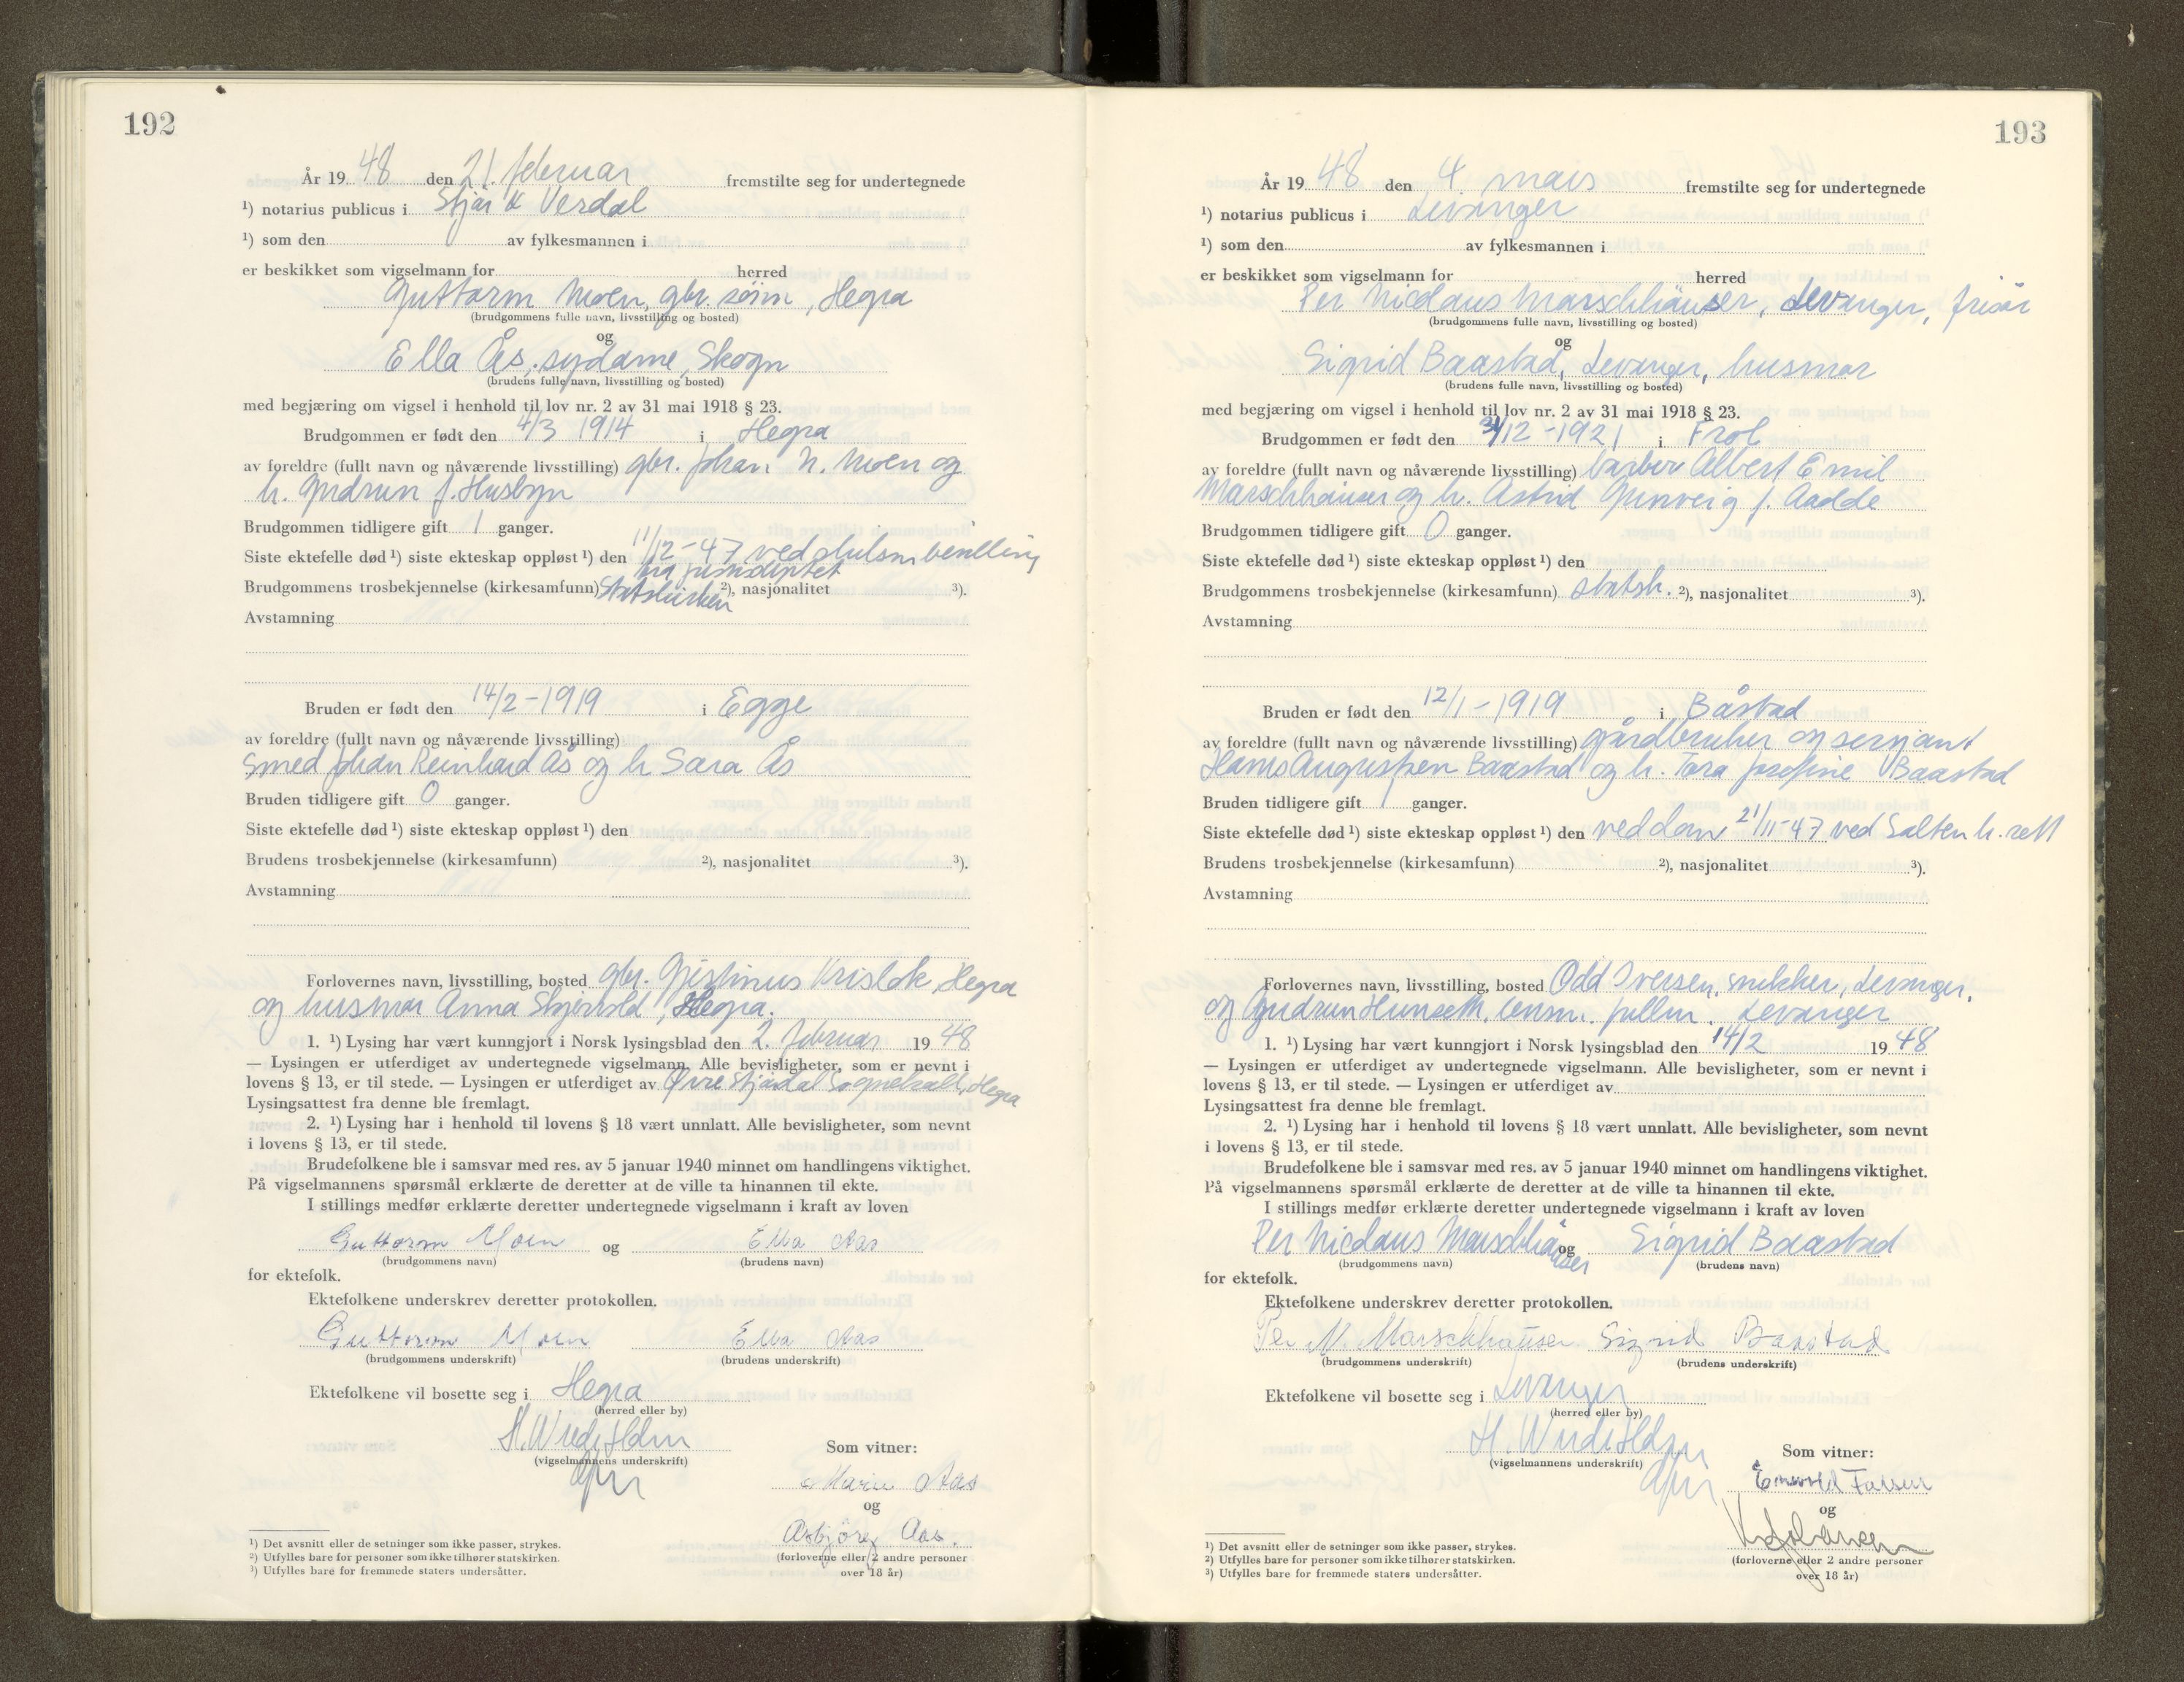 192
År 19 48 den 21. februar fremstilte seg for undertegnede
¹) notarius publicus i Stjør & Verdal
¹) som den av fylkesmannen i
er beskikket som vigselmann for herred
Guttorm Moen, gbr. sønn, Hegra
(brudgommens fulle navn, livsstilling og bosted)
og
Ella Ås, sydame, Skogn
(brudens fulle navn, livsstilling og bosted)
med begjæring om vigsel i henhold til lov nr. 2 av 31 mai 1918 § 23.
Brudgommen er født den 4/3 1914 i Hegra
av foreldre (fullt navn og nåværende livsstilling) gbr. Johan N. Moen og
h. Gudrun f. Husbyn
Brudgommen tidligere gift 1 ganger.
Siste ektefelle død ¹) siste ekteskap oppløst ¹) den 11/12-47 ved bevilling
fra
Brudgommens trosbekjennelse (kirkesamfunn) Statskirken ²), nasjonalitet ³).
Avstamning
Bruden er født den 14/2-1919 i Egge
av foreldre (fullt navn og nåværende livsstilling)
Smed Johan Reinhard Ås og h. Sara Ås
Bruden tidligere gift 0 ganger.
Siste ektefelle død ¹) siste ekteskap oppløst ¹) den
Brudens trosbekjennelse (kirkesamfunn) ²), nasjonalitet ³).
Avstamning
Forlovernes navn, livsstilling, bosted gbr. Hegra
og husmor Anna Skjervold, Hegra.
1. ¹) Lysing har vært kunngjort i Norsk lysingsblad den 2. februar 19 48
— Lysingen er utferdiget av undertegnede vigselmann. Alle bevisligheter, som er nevnt i
lovens § 13, er til stede. — Lysingen er utferdiget av Øvre Stjørdal Sognekall, Hegra
Lysingsattest fra denne ble fremlagt.
2. ¹) Lysing har i henhold til lovens § 18 vært unnlatt. Alle bevisligheter, som nevnt
i lovens § 13, er til stede.
Brudefolkene ble i samsvar med res. av 5 januar 1940 minnet om handlingens viktighet.
På vigselmannens spørsmål erklærte de deretter at de ville ta hinannen til ekte.
I stillings medfør erklærte deretter undertegnede vigselmann i kraft av loven
Guttorm Moen og Ella Aas
(brudgommens navn) (brudens navn)
for ektefolk.
Ektefolkene underskrev deretter protokollen.
Guttorm Moen Ella Aas
(brudgommens underskrift) (brudens underskrift)
Ektefolkene vil bosette seg i Hegra
(herred eller by)
Som vitner:
(vigselmannens underskrift)
Marie Aas
og
Asbjörg Aas.
(forloverne eller 2 andre personer
over 18 år)
¹) Det avsnitt eller de setninger som ikke passer, strykes.
²) Utfylles bare for personer som ikke tilhører statskirken.
³) Utfylles bare for fremmede staters undersåtter.
193
År 19 48 den 4. mars fremstilte seg for undertegnede
¹) notarius publicus i Levanger
¹) som den av fylkesmannen i
er beskikket som vigselmann for herred
Per Nicolaus Marschhäuser, Levanger, frisør
(brudgommens fulle navn, livsstilling og bosted)
og
Sigrid Baastad, Levanger, husmor
(brudens fulle navn, livsstilling og bosted)
med begjæring om vigsel i henhold til lov nr. 2 av 31 mai 1918 § 23.
Brudgommen er født den 31/12-1921 i Frol
av foreldre (fullt navn og nåværende livsstilling) barber Albert Emil
Marschhäuser og h. Astrid Gunveig f. Aadde
Brudgommen tidligere gift 0 ganger.
Siste ektefelle død ¹) siste ekteskap oppløst ¹) den
Brudgommens trosbekjennelse (kirkesamfunn) statsk. ²), nasjonalitet ³).
Avstamning
Bruden er født den 12/1-1919 i Båstad
av foreldre (fullt navn og nåværende livsstilling) gårdbruker og sersjant
Hans Baastad og h. Tora Josefine Baastad
Bruden tidligere gift 1 ganger.
Siste ektefelle død ¹) siste ekteskap oppløst ¹) den ved dom 21/11-47 ved Salten h.rett
Brudens trosbekjennelse (kirkesamfunn) ²), nasjonalitet ³).
Avstamning
Forlovernes navn, livsstilling, bosted Odd Iversen, snekker, Levanger,
og Gudrun Levanger
1. ¹) Lysing har vært kunngjort i Norsk lysingsblad den 14/2 19 48
— Lysingen er utferdiget av undertegnede vigselmann. Alle bevisligheter, som er nevnt i
lovens § 13, er til stede. — Lysingen er utferdiget av
Lysingsattest fra denne ble fremlagt.
2. ¹) Lysing har i henhold til lovens § 18 vært unnlatt. Alle bevisligheter, som nevnt
i lovens § 13, er til stede.
Brudefolkene ble i samsvar med res. av 5 januar 1940 minnet om handlingens viktighet.
På vigselmannens spørsmål erklærte de deretter at de ville ta hinannen til ekte.
I stillings medfør erklærte deretter undertegnede vigselmann i kraft av loven
Per Nicolaus Marschhäuser og Sigrid Baastad
(brudgommens navn) (brudens navn)
for ektefolk.
Ektefolkene underskrev deretter protokollen.
Per N. Marschhäuser Sigrid Baastad
(brudgommens underskrift) (brudens underskrift)
Ektefolkene vil bosette seg i Levanger
(herred eller by)
Som vitner:
(vigselmannens underskrift)
og
(forloverne eller 2 andre personer
over 18 år)
¹) Det avsnitt eller de setninger som ikke passer, strykes.
²) Utfylles bare for personer som ikke tilhører statskirken.
³) Utfylles bare for fremmede staters undersåtter.